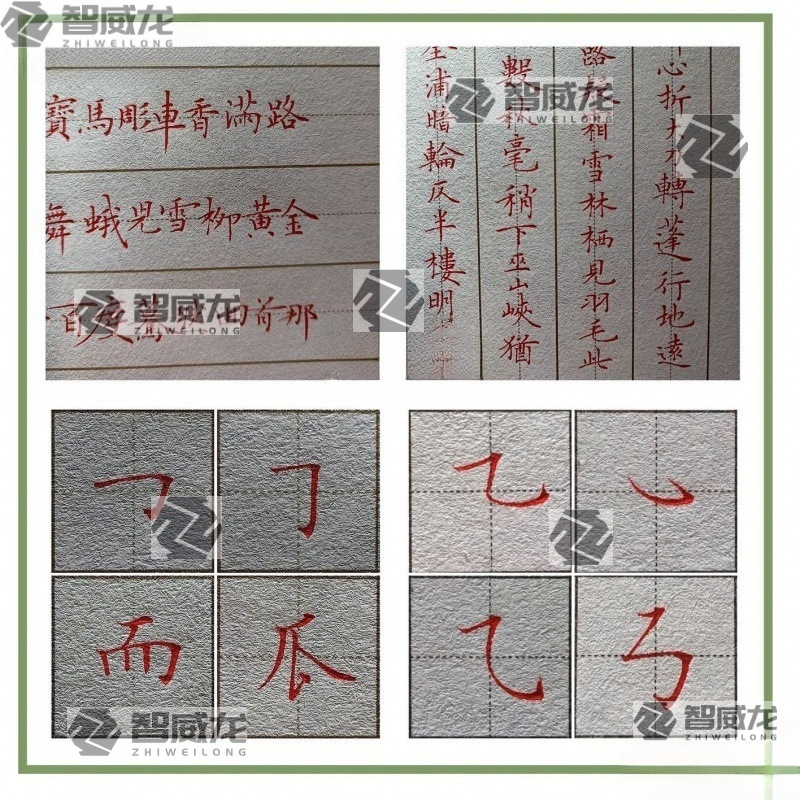 智威龙
ZHIWEILONG
寶馬彫車香滿路
舞蛾児雪柳黃金
百度
回首那
心折大刀轉蓬行地遠
路 霜雪林栖見羽毛此
數 毫稍下巫山峽猶
全浦暗輪仄半樓明
智威龙
ZHIWEILONG
智威龙
ZHIWEILONG
而 瓜
乙
乙
智威龙
ZHIWEILONG
智威龙
ZHIWEILONG